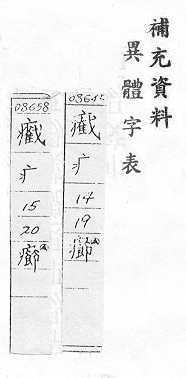 補充資料
異體字表
疒
14
19
癤
08658
疒
15
20
癤